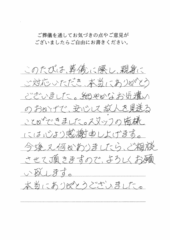 ご葬儀を通してお気づきの点やご意見が
ございましたらご自由にお書きください。
このたびは、葬儀に際し、親身に
ご対応いただき 本当にありがとう
ございました。細やかなお気遣い
のおかげで、安心して故人を見送る
ことができました。スタッフの皆様
には心より感謝申し上げます。
今後も何かありましたら、ご相談
させて頂きますので、よろしくお願
い致します。
本当にありがとうございました。